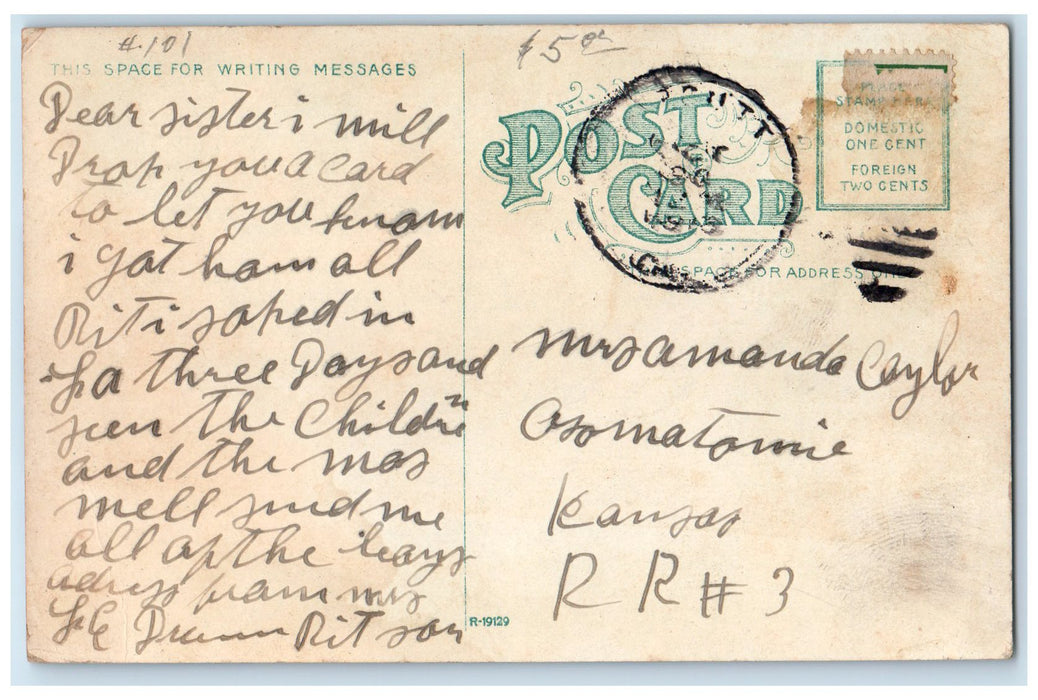 #.101
THIS SPACE FOR WRITING MESSAGES
Dear sister i will
Drop you a card
to let you know
i got ham all
Rit i soped in
La three Days and
seen the Children
and the mas
well send me
all of the boys
adress fram mrs
L E Drumm Rit son
$5
POST CARD
PLACE
STAMP HERE
DOMESTIC
ONE CENT
FOREIGN
TWO CENTS
SPACE FOR ADDRESS ONLY
mrs amanda Caylor
Osomatomie
Kansas
R R # 3
R-19129